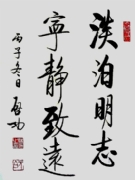 淡泊明志
寧静致遠
丙子冬日 启功